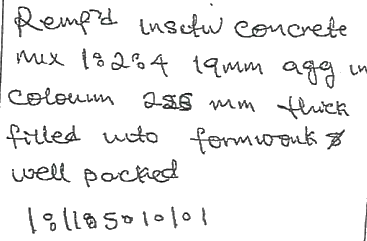 Remf'd insitu concrete
mix 1:2:4 19mm agg in
coloumn mm thick
filled into formwork &
well packed